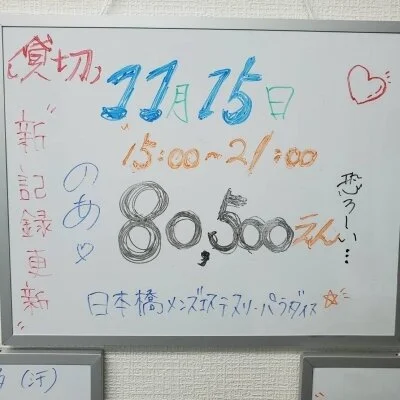 (貸切)
11月15日
15:00~21:00
"新記録更新"
のあ♡
80,500えん
恐ろしい…
日本橋メンズエステスリーパラダイス☆
(汗)